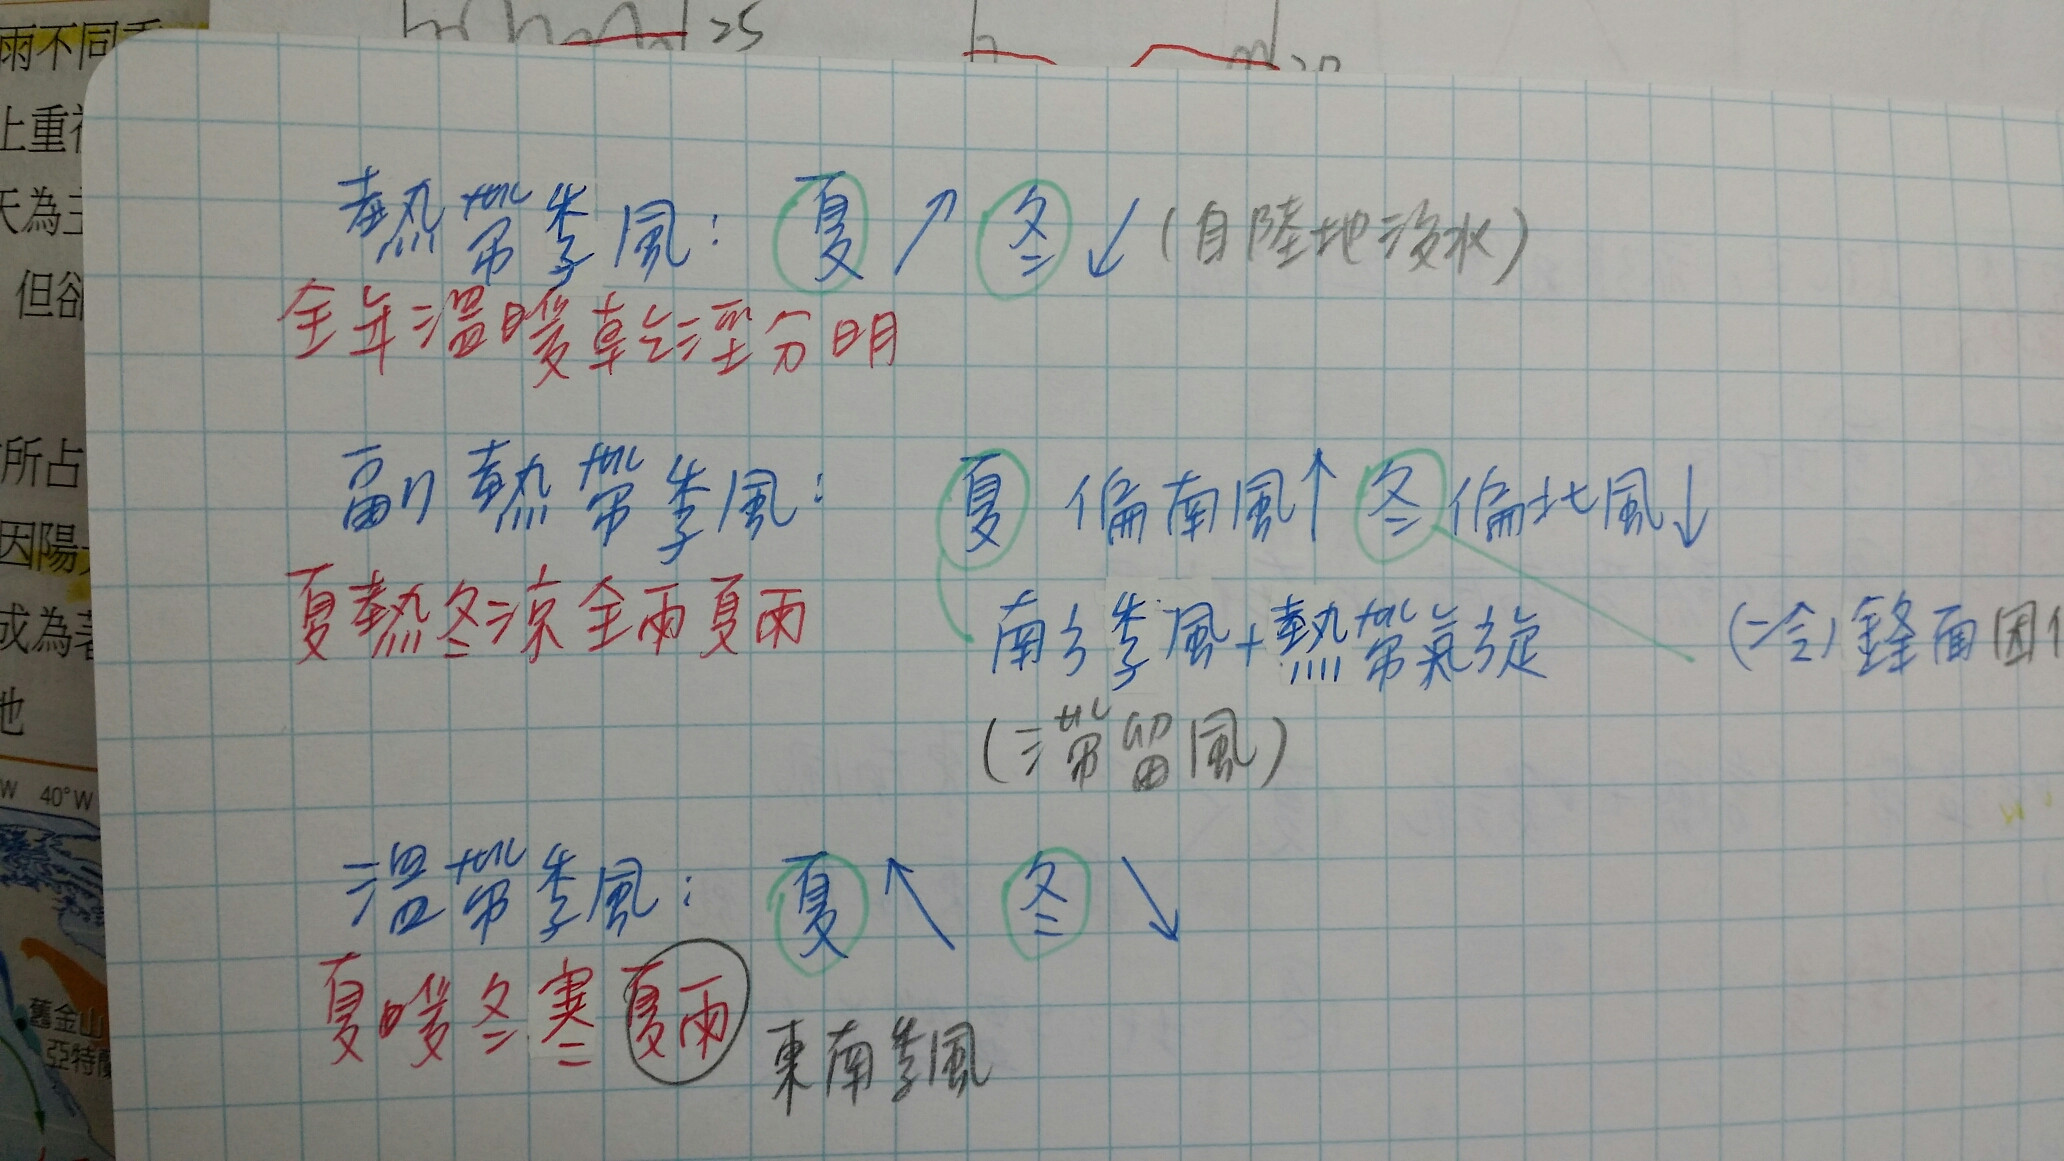 雨不同
上重
天為主
但卻
所占
因陽
成為著
地
W 40°W
舊金山
亞特蘭
25
熱帶季風：夏↗冬↙(自陸地沒水)
全年溫暖乾溼分明
副熱帶季風：夏 偏南風↑ 冬偏北風↓
夏熱冬涼全雨夏雨
南方季風+熱帶氣旋
(冷)鋒面因
(滯留風)
溫帶季風：夏↖ 冬↘
夏暖冬寒夏雨
東南季風